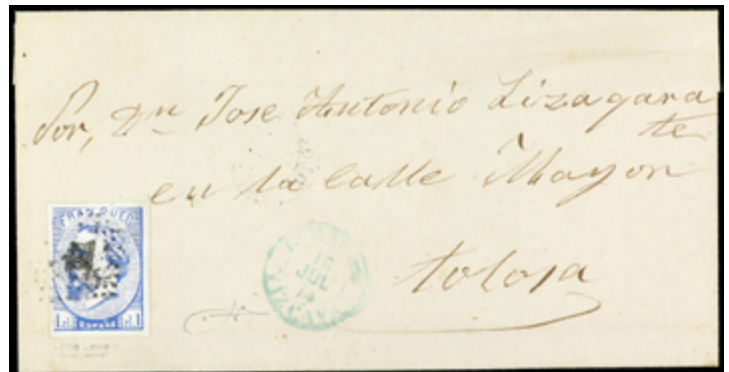 Sor, Dn Jose Antonio Lizagara
te
en la calle Mayor
tolosa
FRANQUEO
1 rl. ESPAÑA rl. 1
16
JUL
VIZCAYA